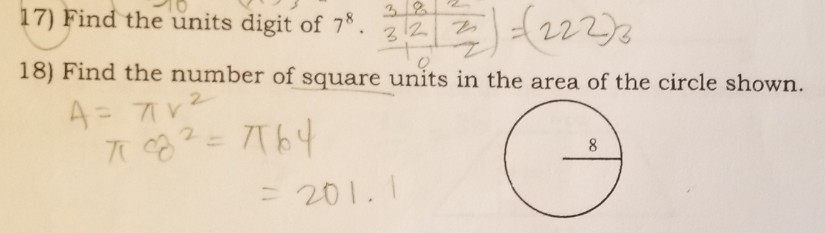 17) Find the units digit of 7⁸.
3 8 2
3 2 2
0 2
= (222)₃
18) Find the number of square units in the area of the circle shown.
A = πr²
π 8² = π64
= 201.1
8